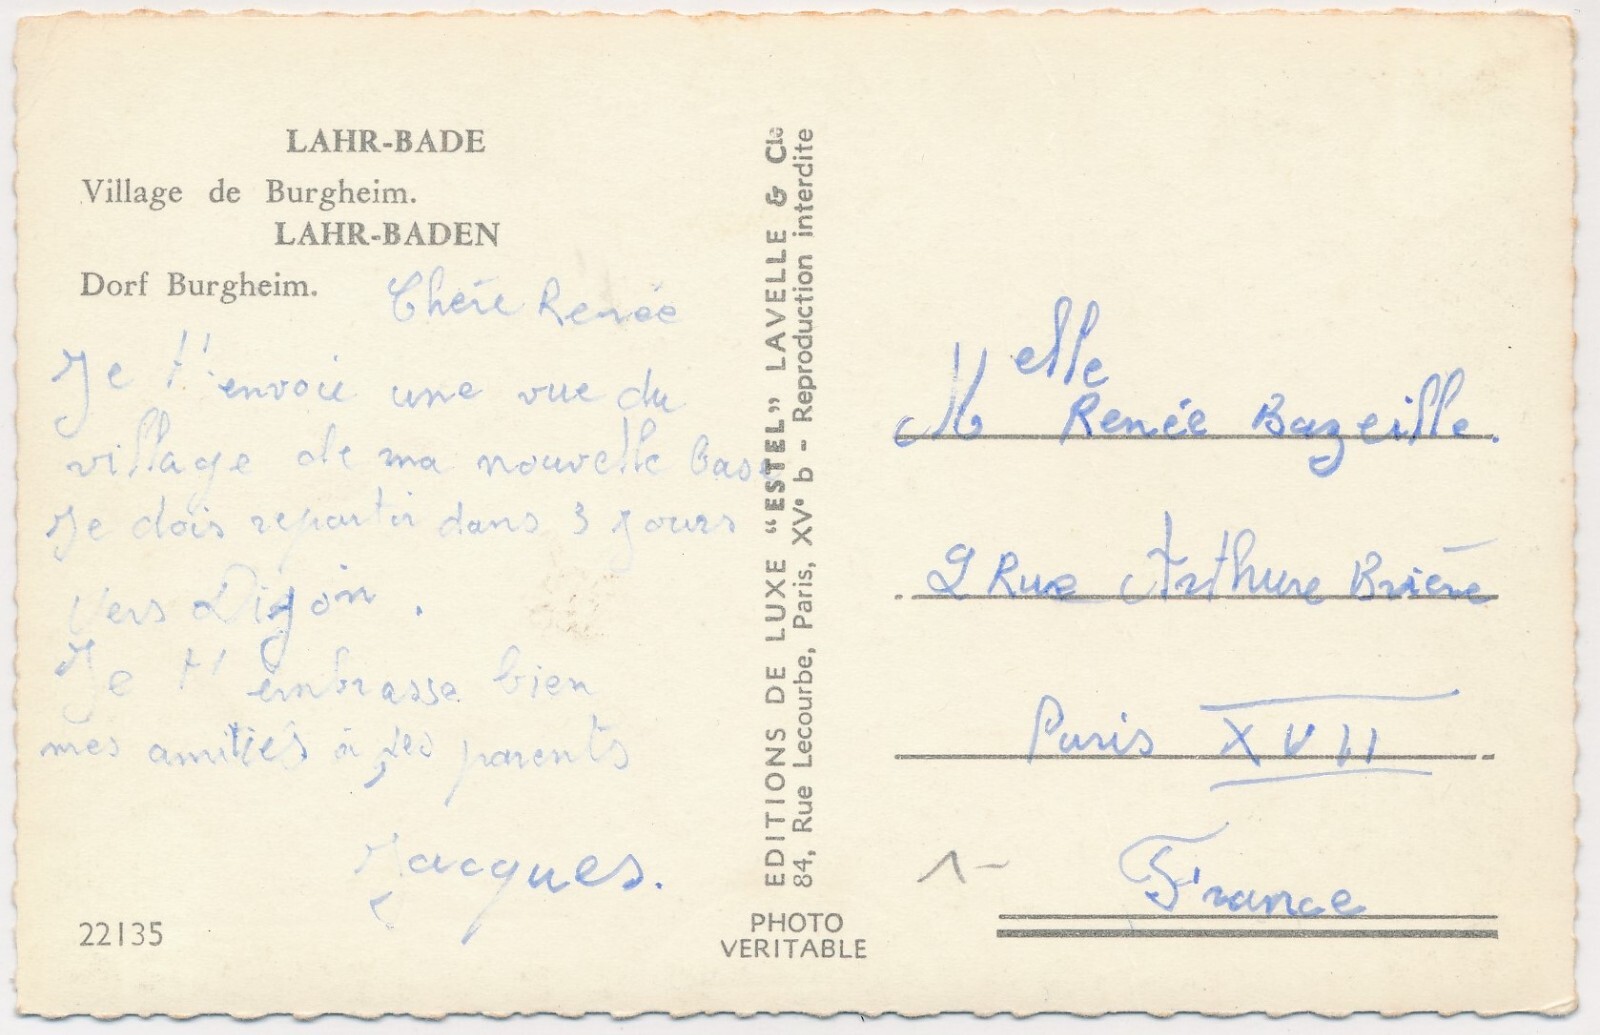 LAHR-BADE
Village de Burgheim.
LAHR-BADEN
Dorf Burgheim.
Chère Renée
Je t'envoie une vue du
village de ma nouvelle base
Je dois repartir dans 3 jours
vers Digon.
Je t'embrasse bien
mes amitiés à tes parents
Jacques.
22135
EDITIONS DE LUXE "ESTEL" LAVELLE & Cie
84, Rue Lecourbe, Paris, XVe b - Reproduction interdite
PHOTO
VERITABLE
Melle Renée Bazeille.
2 Rue Arthure Brière
Paris XVII
France
1-